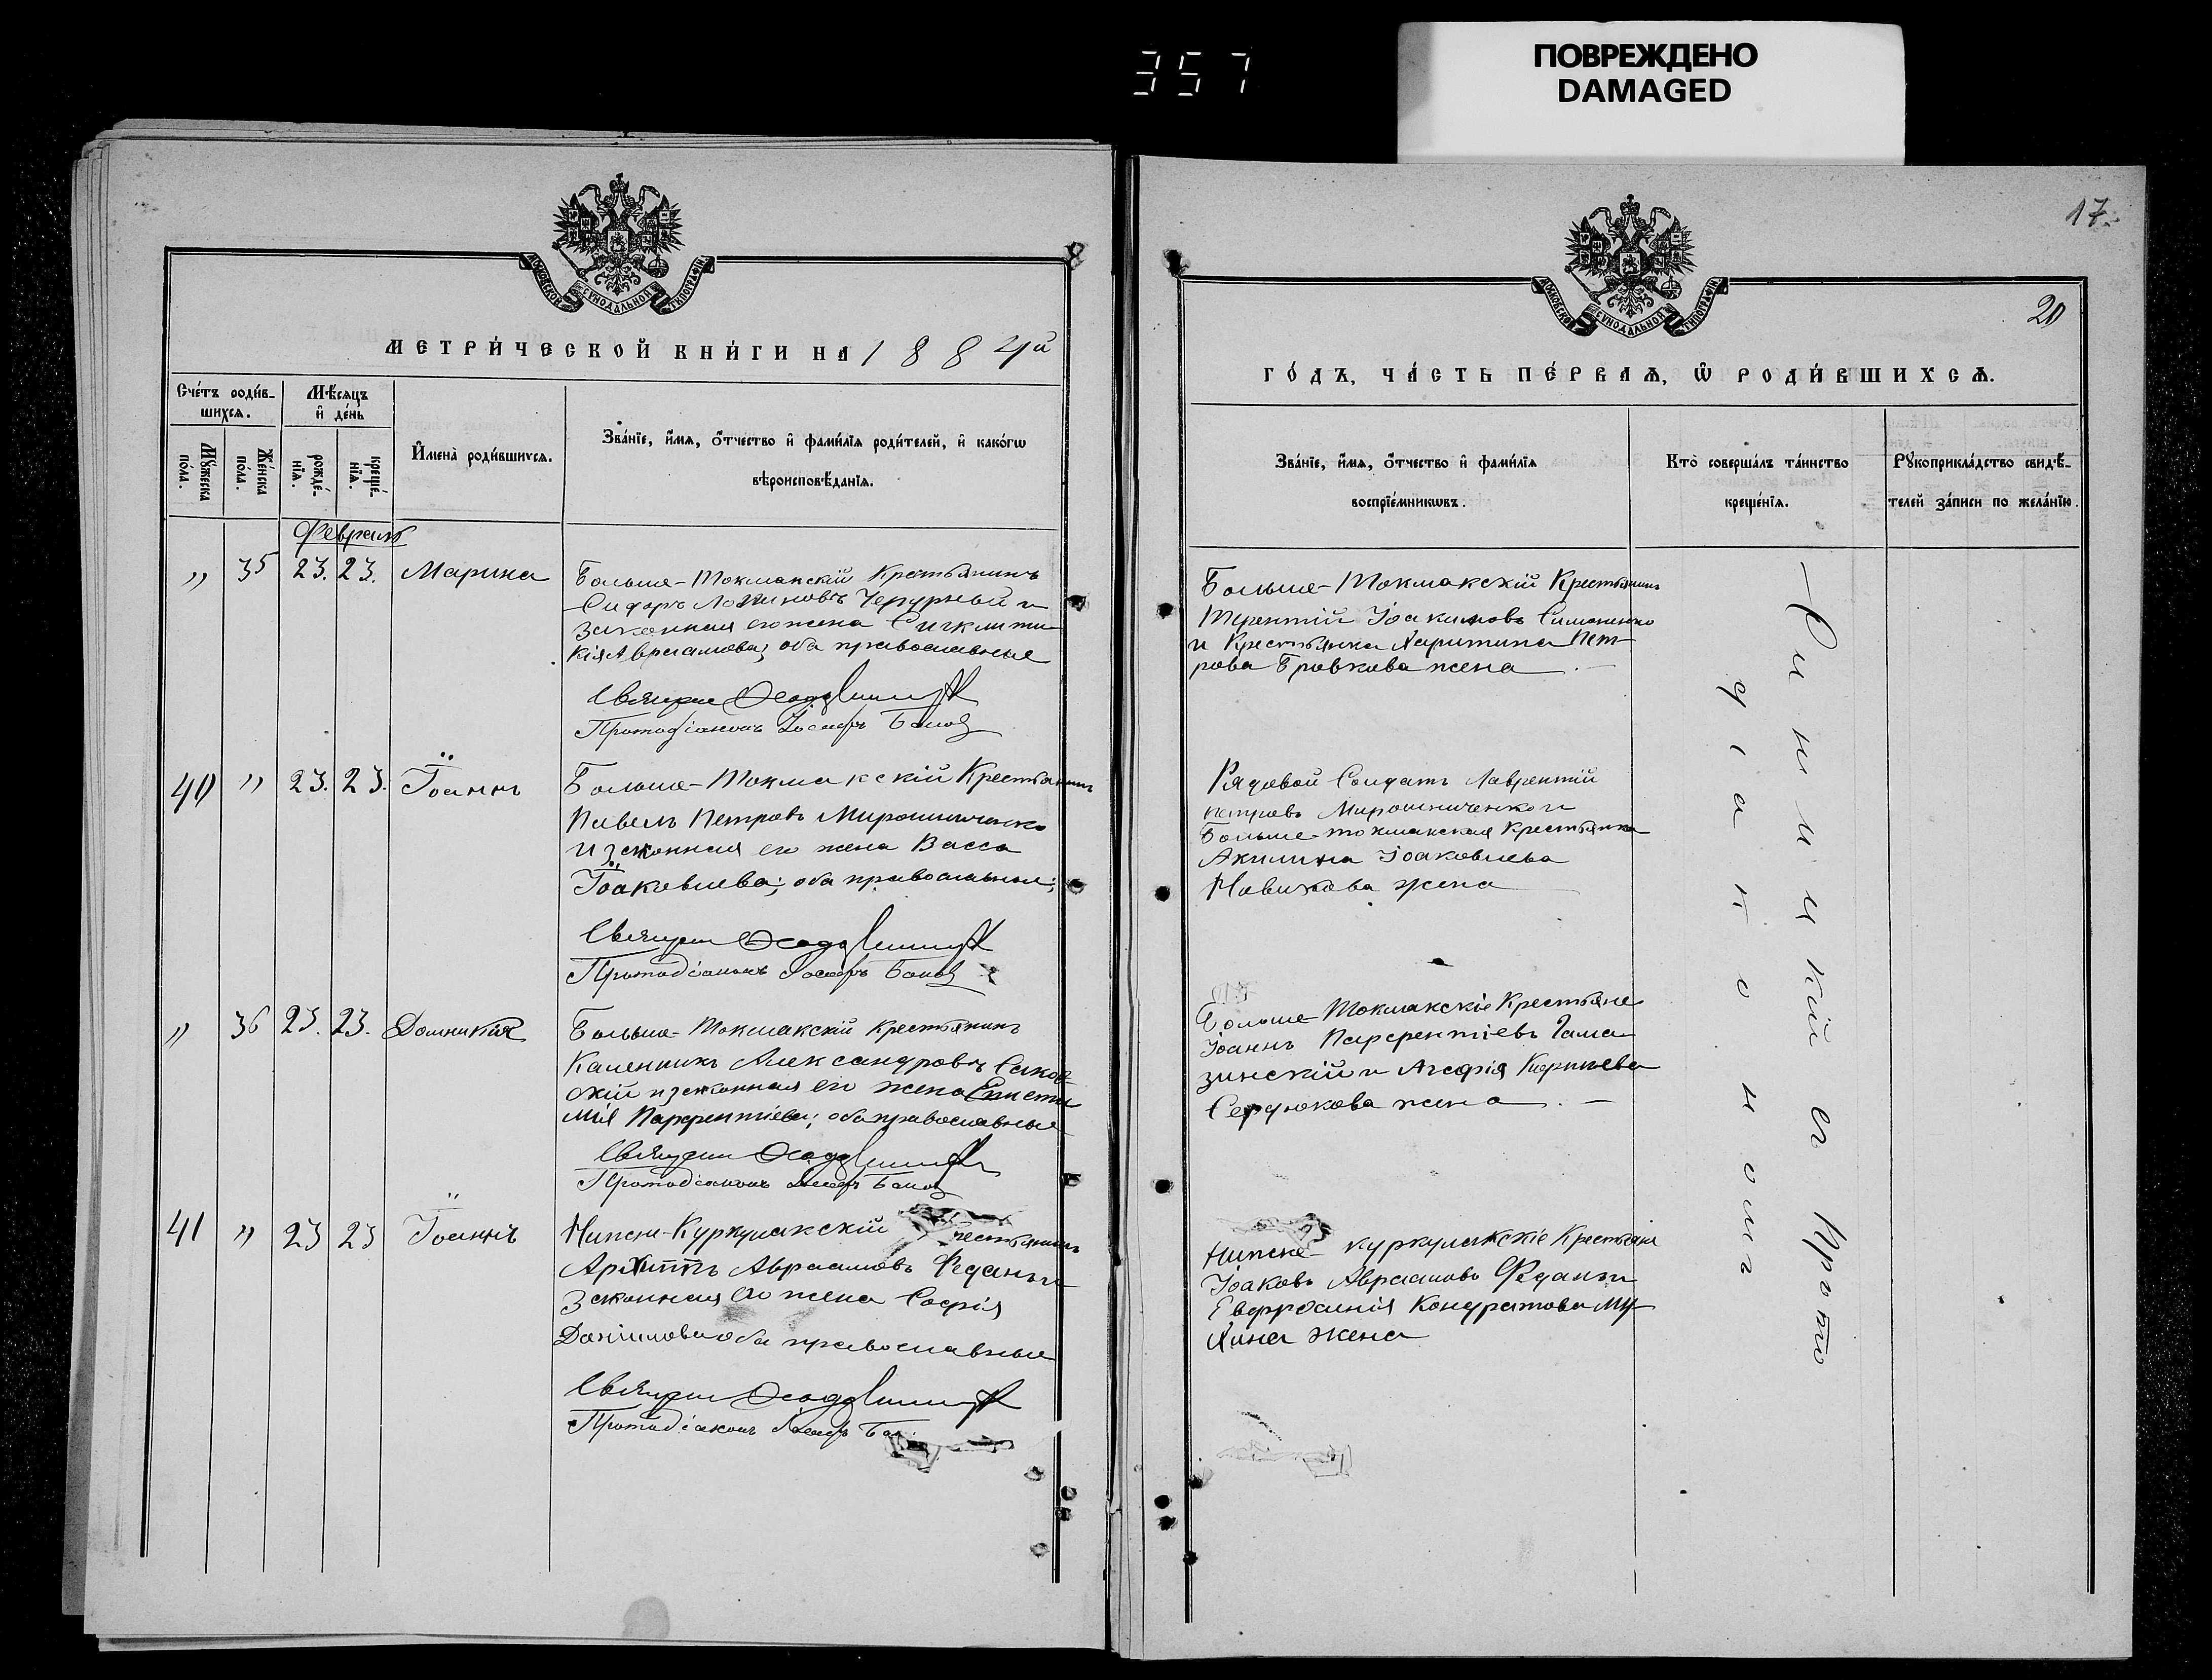 357
ПОВРЕЖДЕНО
DAMAGED
МОСКОВСКОЙ СѴНОДАЛЬНОЙ ТИПОГРАФІИ
МЕТРИ́ЧЕСКОЙ КНИ́ГИ НА 1884й
Сче́тъ роди́в-
шихся.
Мѣ́сяцъ
и҆ де́нь
Мꙋ́жеска
по́ла.
Же́нска
по́ла.
рожде́-
нїя.
креще́-
нїя.
И҆мена̀ роди́вшихся.
Зва́нїе, и҆́мя, ѻ҆́тчество и҆ фами́лїя роди́телей, и҆ како́гѡ
вѣроисповѣ́данїя.
Февраль
" 35 23. 23. Марина
Больше-Токмакскій Крестьянинъ
Сидоръ Чепурный и
законная его жена Синклити
кія Авраамова; оба православные
Священ
Протодіаконъ Іосифъ
40 " 23. 23. Іоаннъ
Больше-Токмакскій Крестьянинъ
Павелъ Петровъ Мирошниченко
и законная его жена Васса
Іоаковлева; оба православные;
Священ
Протодіаконъ Іосифъ
" 36 23. 23. Домникія
Больше-Токмакскій крестьянинъ
Каленникъ Александровъ
скій и законная его жена Еписти
мія Парфентіева; оба православные
Священ
Протодіаконъ Іосифъ
41 " 23 23 Іоаннъ
Нижне-Куркулакскій крестьянинъ
Архиппъ Авраамовъ Феданъ и
законная его жена Софія
Даніилова оба православные
Священ
Протодіаконъ Іосифъ
17.
20
МОСКОВСКОЙ СѴНОДАЛЬНОЙ ТИПОГРАФІИ
ГО́ДЪ, ЧА́СТЬ ПЕ́РВАЯ, Ѡ҆ РОДИ́ВШИХСЯ.
Зва́нїе, и҆́мя, ѻ҆́тчество и҆ фами́лїя
воспрїе́мникѡвъ.
Кто̀ соверша́лъ та́инство
креще́нїя.
Рꙋкоприкла́дство свидѣ́-
телей за́писи по жела́нїю.
Больше-Токмакскій Крестьянинъ
Терентій Іоакимовъ Симоненко
и Крестьянка Харитина Пет-
рова Бровкова жена
Рядовой Солдатъ Лаврентій
Петровъ Мирошниченко и
Больше-токмакская Крестьянка
Акилина Іоаковлева
Новикова жена
Больше-Токмакскіе Крестьяне
Іоаннъ Парфентіевъ Гама-
зинскій и Агафія
Сердюкова жена.
Нижне-куркулакскіе Крестьяне
Іоаковъ Авраамовъ Феданъ и
Евфросинія Кондратова Му-
хина жена
съ Прото
діакономъ